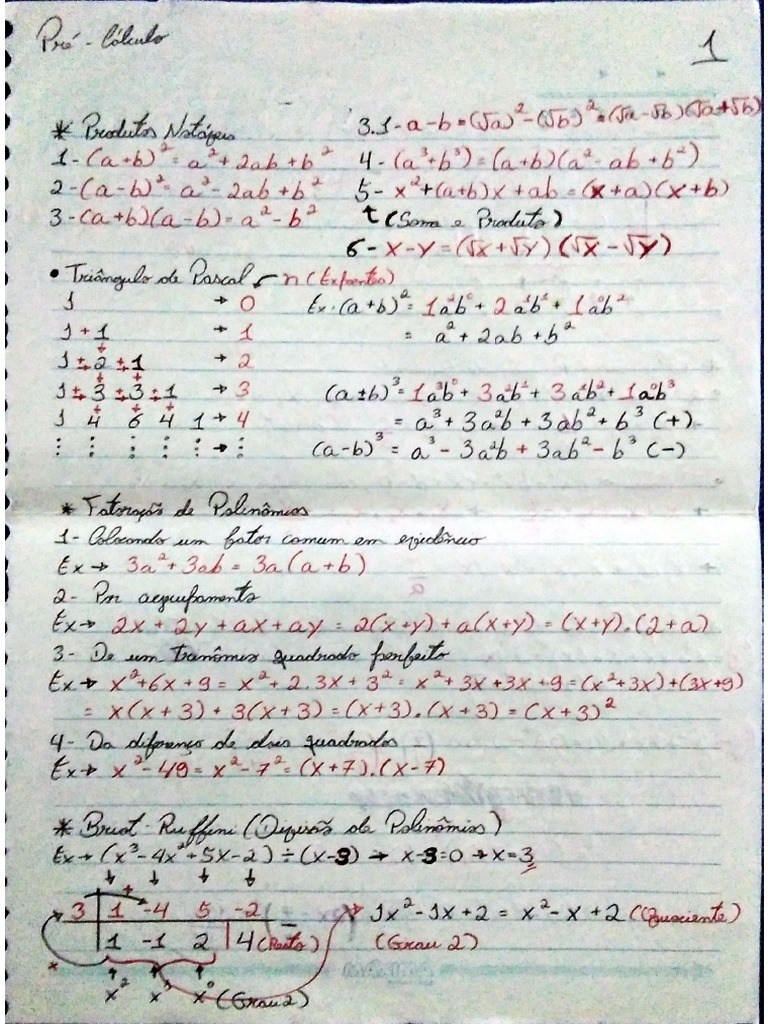 Pré-Cálculo
1
* Produtos Notáveis
1-(a+b)² = a²+2ab+b²
2-(a-b)² = a²-2ab+b²
3-(a+b)(a-b) = a²-b²
3.1-a-b=(√a)²-(√b)²=(√a-√b)(√a+√b)
4-(a³+b³)=(a+b)(a²-ab+b²)
5-x²+(a+b)x+ab=(x+a)(x+b)
(Soma e Produto)
6-x-y=(√x+√y)(√x-√y)
• Triângulo de Pascal n (Expoentes)
1 → 0
1+1 → 1
1+2+1 → 2
1+3+3+1 → 3
1 4 6 4 1 → 4
⋮ ⋮ ⋮ ⋮ ⋮ → ⋮
Ex.(a+b)² = 1a²b⁰ + 2a¹b¹ + 1a⁰b²
= a²+2ab+b²
(a±b)³ = 1a³b⁰+3a²b¹+3a¹b²+1a⁰b³
= a³+3a²b+3ab²+b³ (+)
(a-b)³ = a³-3a²b+3ab²-b³ (-)
* Fatoração de Polinômios
1- Colocando um fator comum em evidência
Ex → 3a²+3ab = 3a(a+b)
2- Por agrupamento
Ex → 2x+2y+ax+ay = 2(x+y)+a(x+y) = (x+y).(2+a)
3- De um trinômio quadrado perfeito
Ex → x²+6x+9 = x²+2.3x+3² = x²+3x+3x+9 = (x²+3x)+(3x+9)
= x(x+3)+3(x+3) = (x+3).(x+3) = (x+3)²
4- Da diferença de dois quadrados
Ex → x²-49 = x²-7² = (x+7).(x-7)
* Briot-Ruffini (Divisão de Polinômios)
Ex → (x³-4x²+5x-2)÷(x-3) → x-3=0 → x=3
+
3 1 -4 5 -2
1 -1 2 4 (Resto)
x
x² x¹ x⁰ (Grau 2)
1x²-1x+2 = x²-x+2 (Quociente)
(Grau 2)